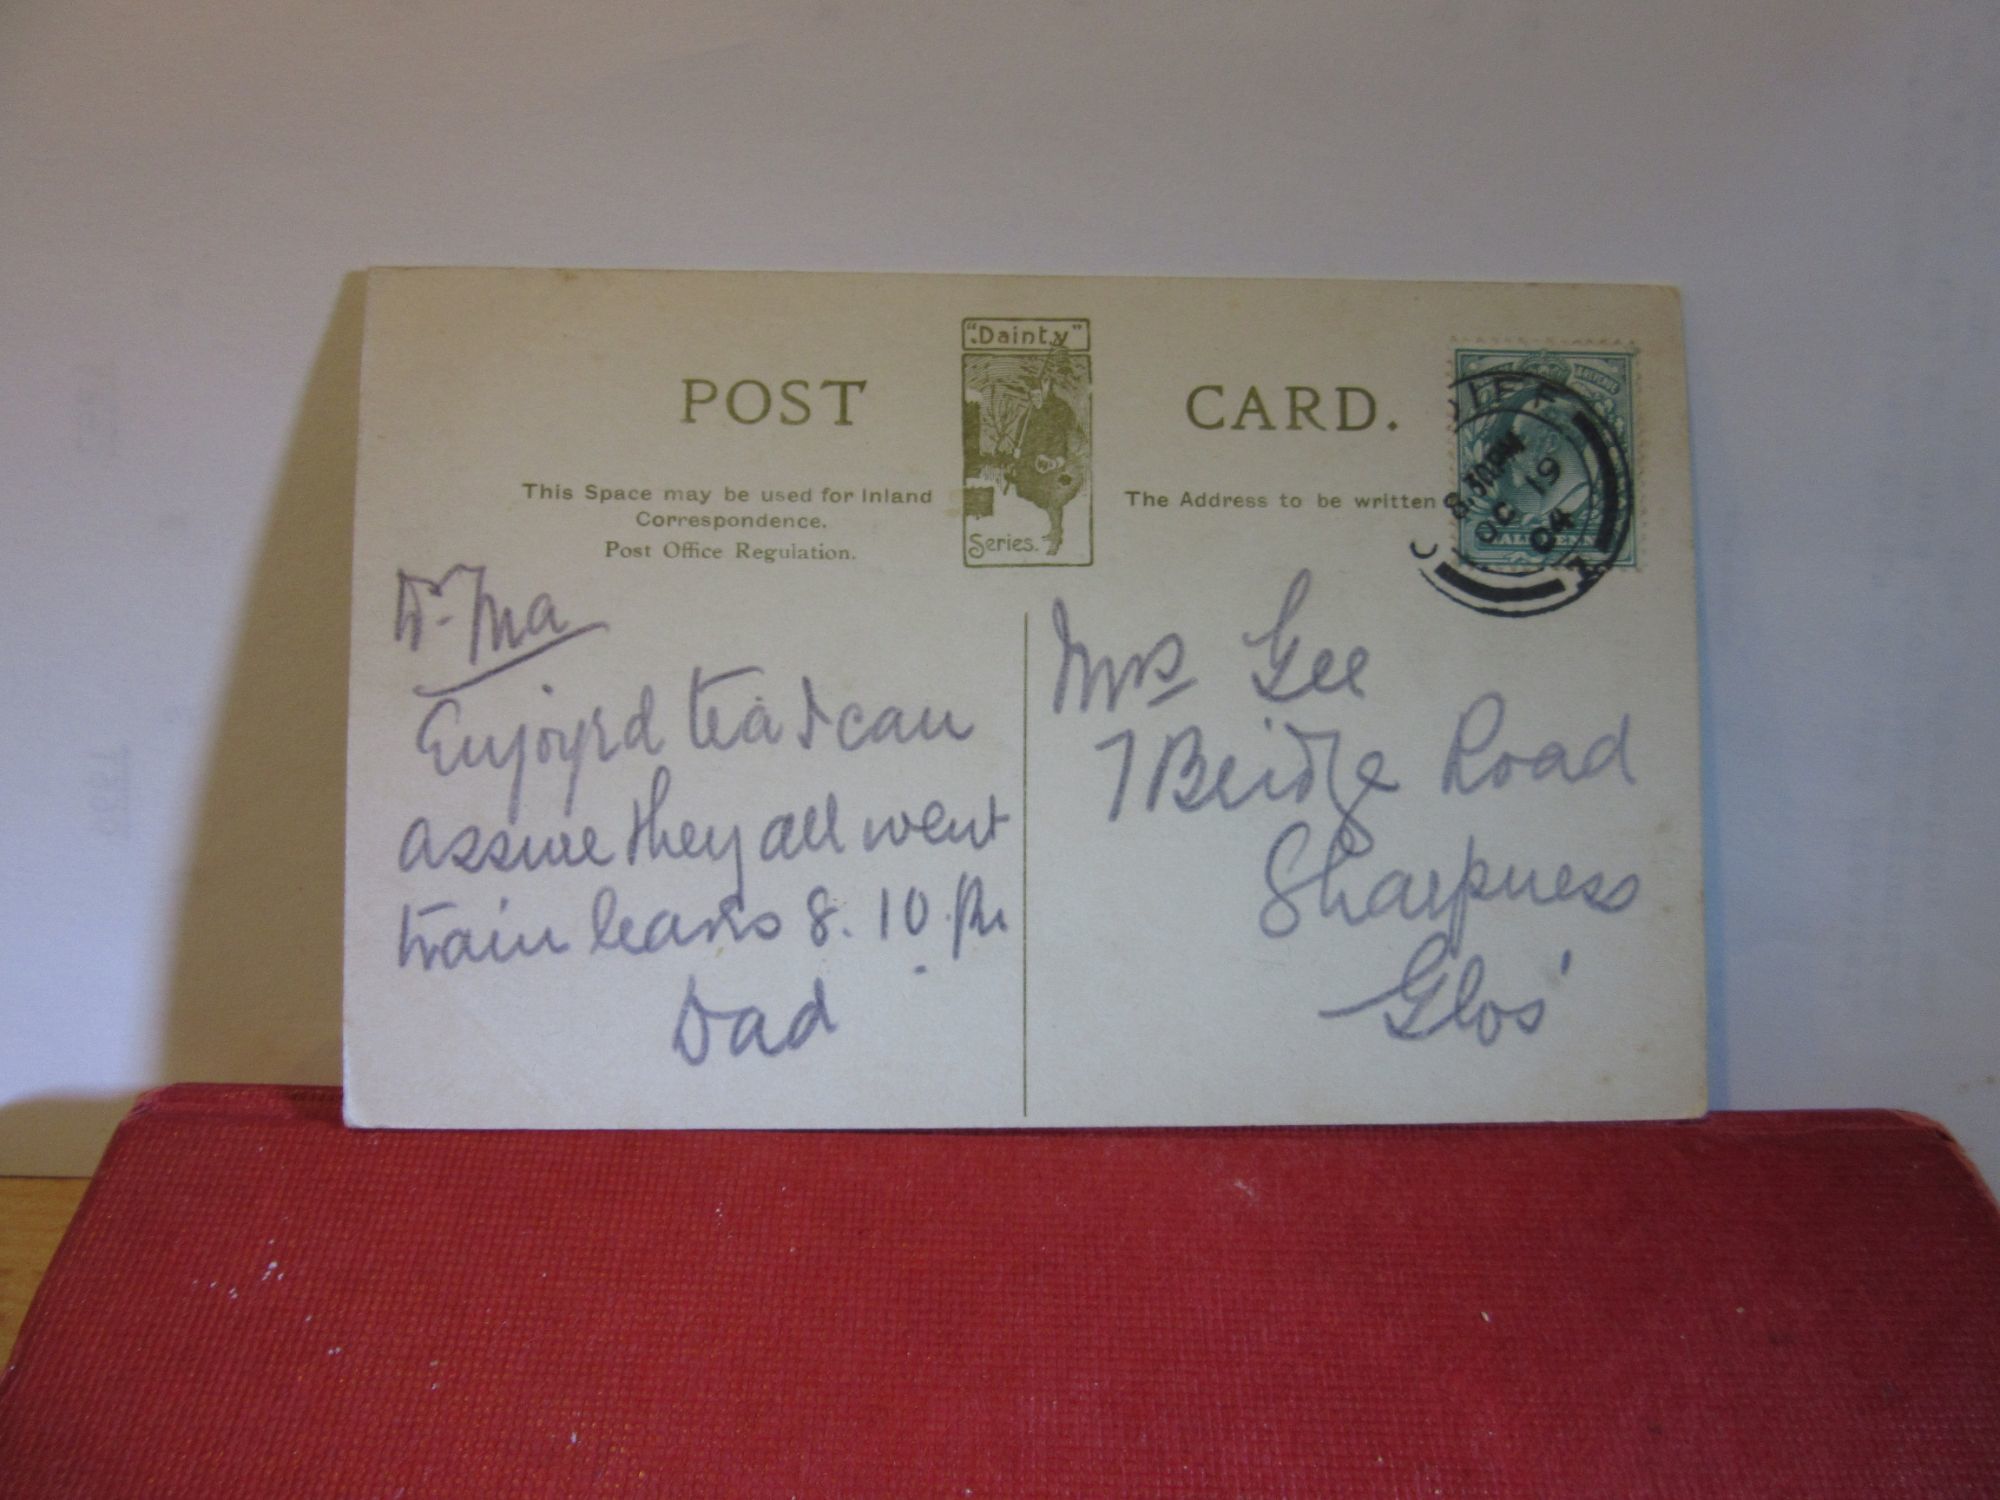 POST CARD.
"Dainty"
Series.
This Space may be used for Inland
Correspondence.
Post Office Regulation.
The Address to be written
DIFF
8.30PM
OC 19
04
HALFPENN
Dr. Ma
Enjoyed tea & can
assure they all went
train leaves 8.10 pm
Dad
Mrs Gee
7 Bridge Road
Sharpness
Glos'